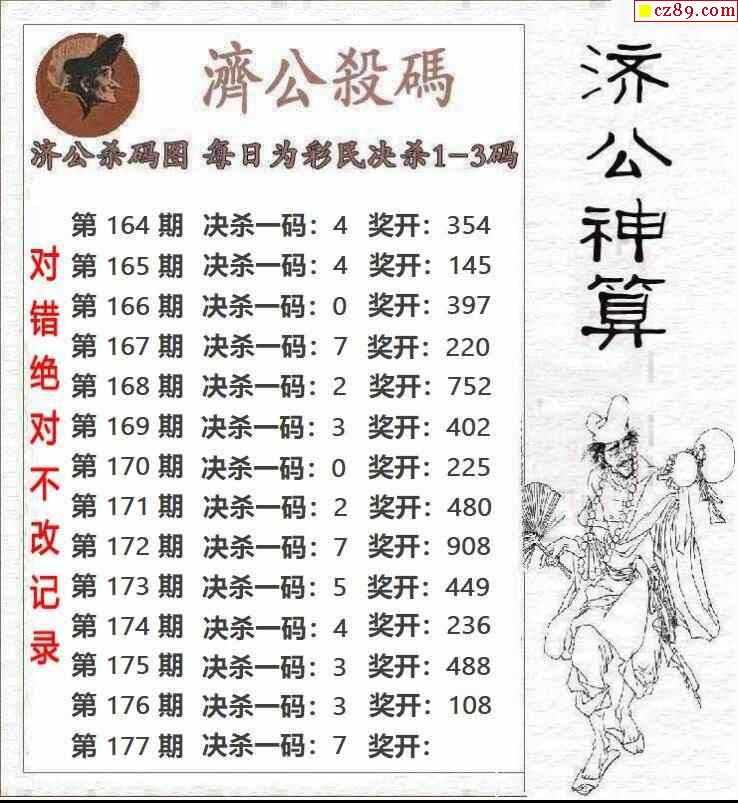 cz89.com
濟公殺碼
济公杀码图 每日为彩民决杀1-3码
第 164 期 决杀一码：4 奖开：354
第 165 期 决杀一码：4 奖开：145
第 166 期 决杀一码：0 奖开：397
第 167 期 决杀一码：7 奖开：220
第 168 期 决杀一码：2 奖开：752
第 169 期 决杀一码：3 奖开：402
第 170 期 决杀一码：0 奖开：225
第 171 期 决杀一码：2 奖开：480
第 172 期 决杀一码：7 奖开：908
第 173 期 决杀一码：5 奖开：449
第 174 期 决杀一码：4 奖开：236
第 175 期 决杀一码：3 奖开：488
第 176 期 决杀一码：3 奖开：108
第 177 期 决杀一码：7 奖开：
对错绝对不改记录
济公神算